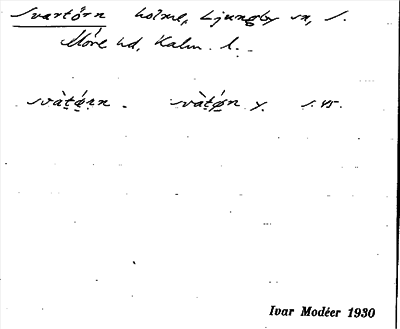 Svartörn holme, Ljungby sn, S.
Möre hd, Kalm. l.
svàtǿn y. s. 45.
Ivar Modéer 1930